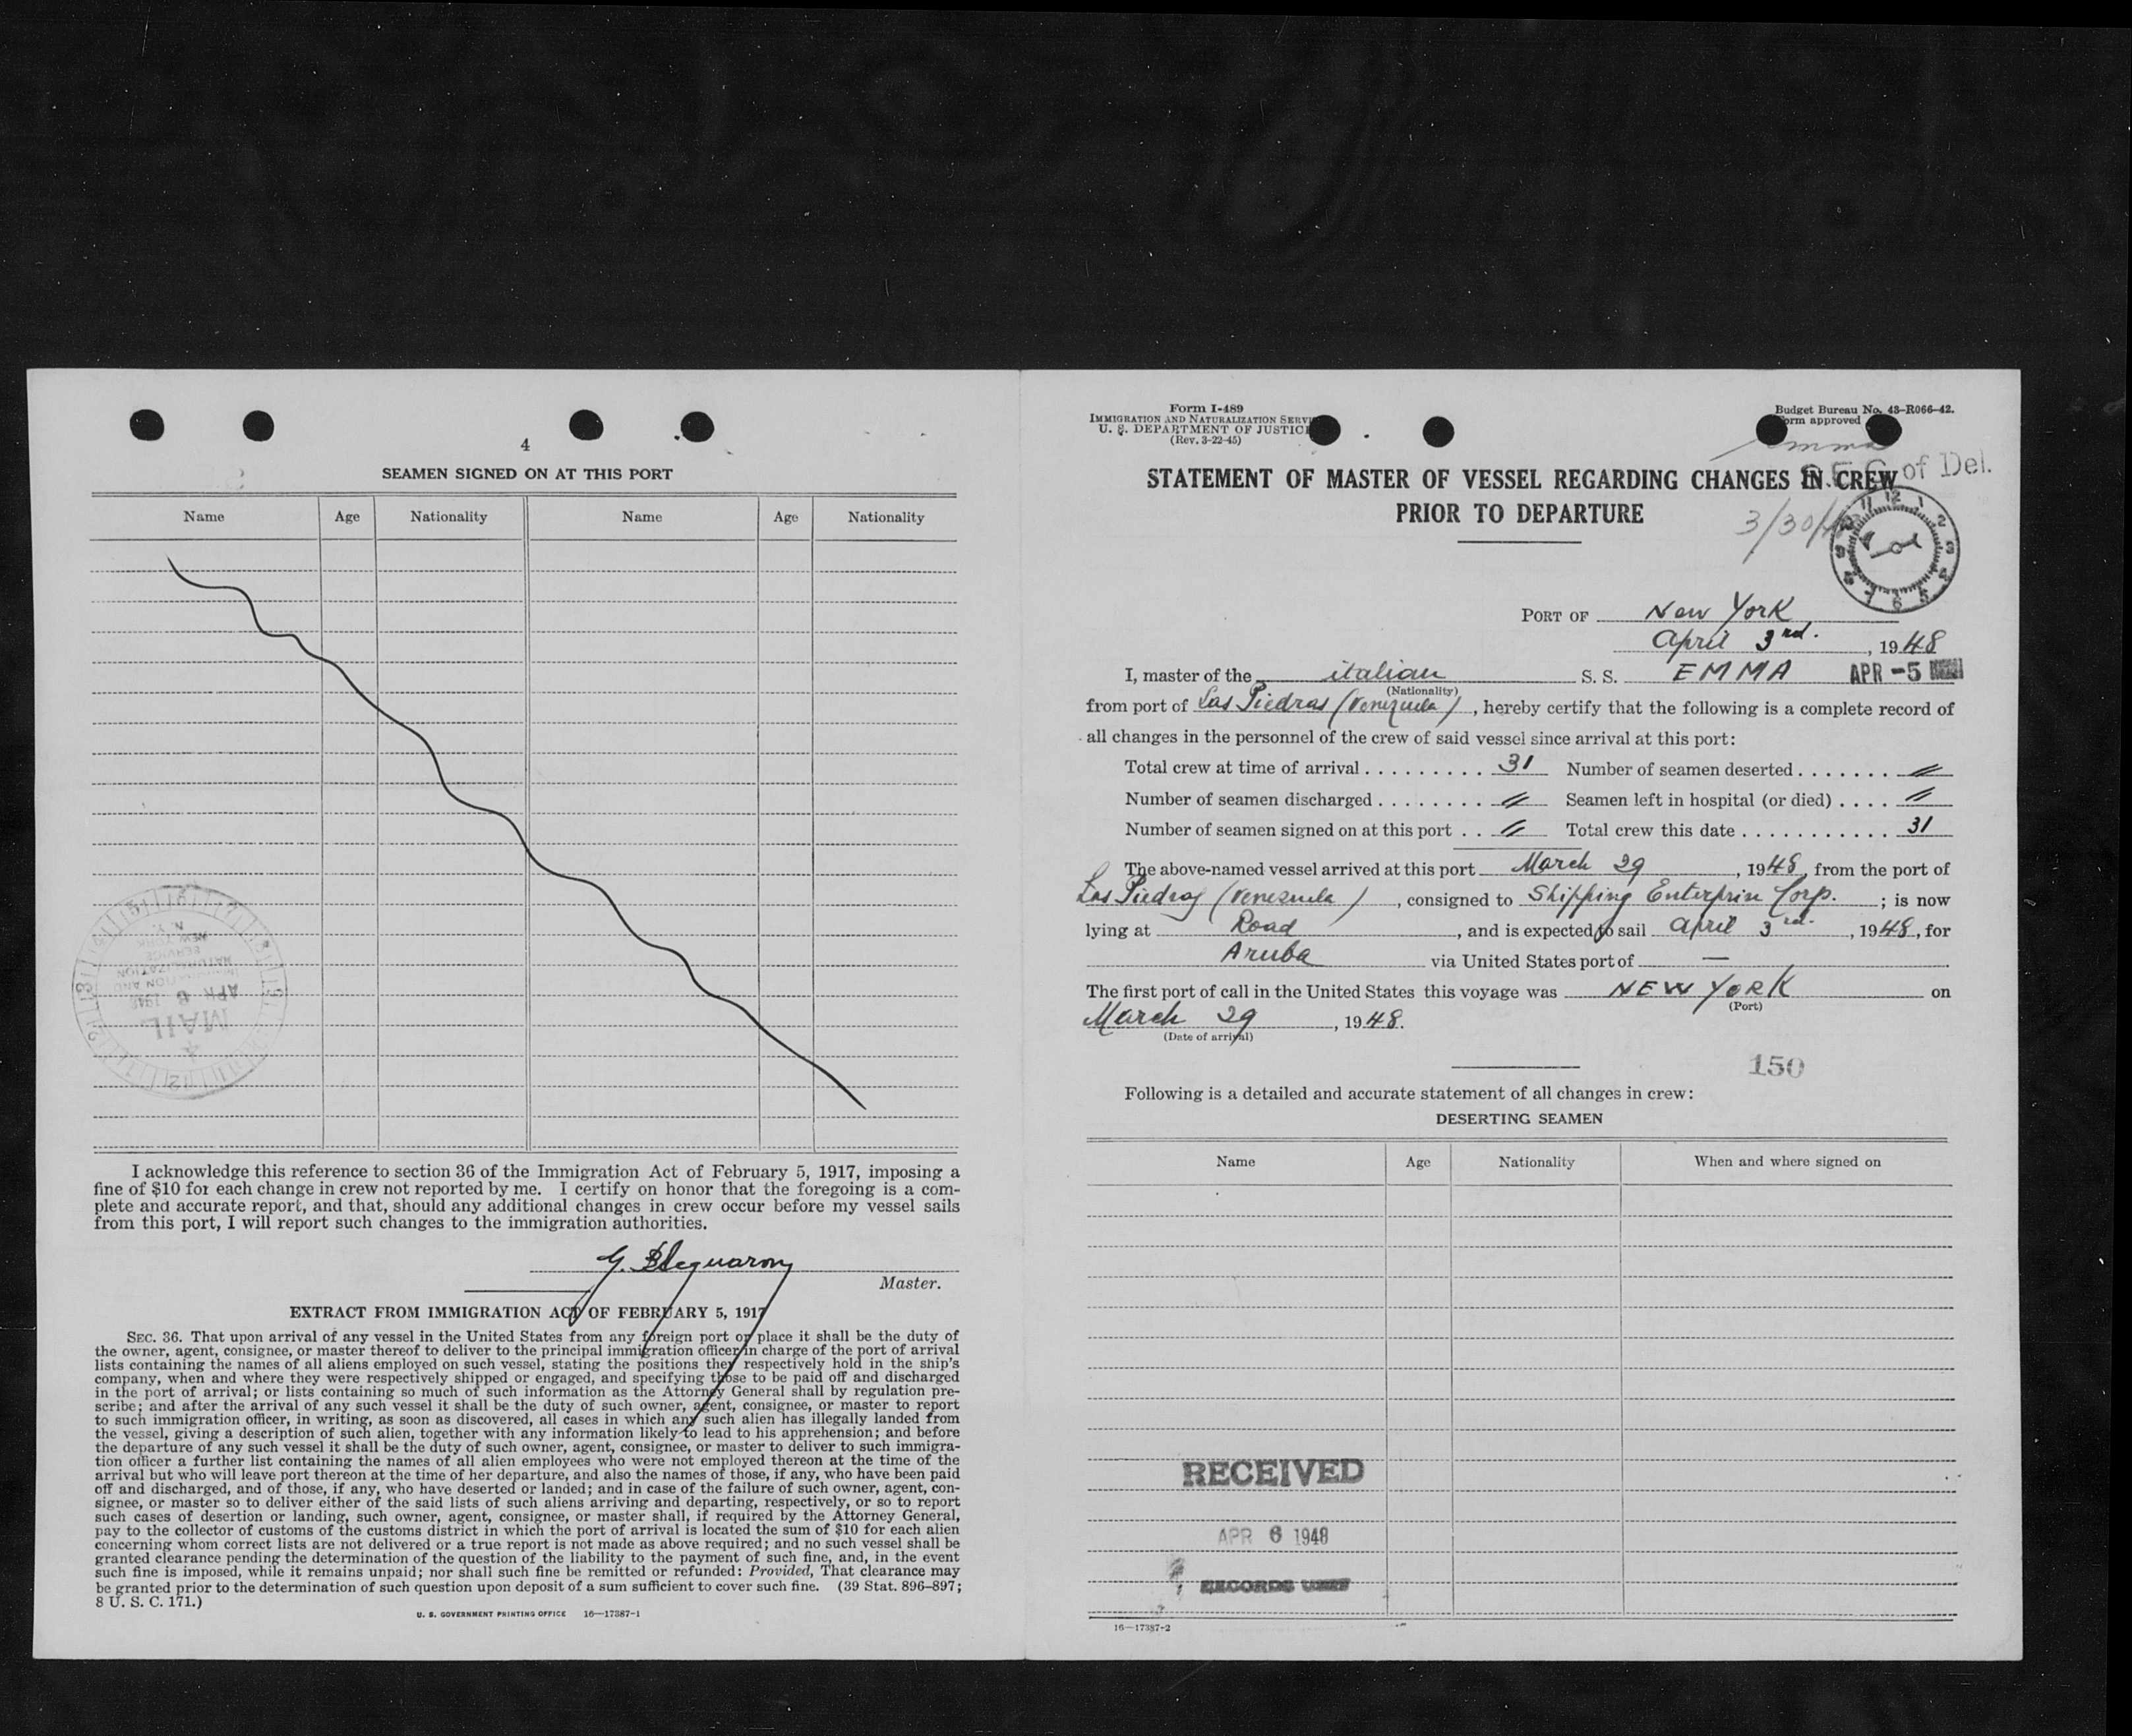 4
SEAMEN SIGNED ON AT THIS PORT
Name Age Nationality Name Age Nationality
MAIL
I acknowledge this reference to section 36 of the Immigration Act of February 5, 1917, imposing a
fine of $10 for each change in crew not reported by me. I certify on honor that the foregoing is a com-
plete and accurate report, and that, should any additional changes in crew occur before my vessel sails
from this port, I will report such changes to the immigration authorities.
G.
Master.
EXTRACT FROM IMMIGRATION ACT OF FEBRUARY 5, 1917
SEC. 36. That upon arrival of any vessel in the United States from any foreign port or place it shall be the duty of
the owner, agent, consignee, or master thereof to deliver to the principal immigration officer in charge of the port of arrival
lists containing the names of all aliens employed on such vessel, stating the positions they respectively hold in the ship's
company, when and where they were respectively shipped or engaged, and specifying those to be paid off and discharged
in the port of arrival; or lists containing so much of such information as the Attorney General shall by regulation pre-
scribe; and after the arrival of any such vessel it shall be the duty of such owner, agent, consignee, or master to report
to such immigration officer, in writing, as soon as discovered, all cases in which any such alien has illegally landed from
the vessel, giving a description of such alien, together with any information likely to lead to his apprehension; and before
the departure of any such vessel it shall be the duty of such owner, agent, consignee, or master to deliver to such immigra-
tion officer a further list containing the names of all alien employees who were not employed thereon at the time of the
arrival but who will leave port thereon at the time of her departure, and also the names of those, if any, who have been paid
off and discharged, and of those, if any, who have deserted or landed; and in case of the failure of such owner, agent, con-
signee, or master so to deliver either of the said lists of such aliens arriving and departing, respectively, or so to report
such cases of desertion or landing, such owner, agent, consignee, or master shall, if required by the Attorney General,
pay to the collector of customs of the customs district in which the port of arrival is located the sum of $10 for each alien
concerning whom correct lists are not delivered or a true report is not made as above required; and no such vessel shall be
granted clearance pending the determination of the question of the liability to the payment of such fine, and, in the event
such fine is imposed, while it remains unpaid; nor shall such fine be remitted or refunded: Provided, That clearance may
be granted prior to the determination of such question upon deposit of a sum sufficient to cover such fine. (39 Stat. 896–897;
8 U. S. C. 171.)
U. S. GOVERNMENT PRINTING OFFICE 16—17387-1
Form I-489
IMMIGRATION AND NATURALIZATION
U. S. DEPARTMENT OF JUSTICE
(Rev. 3-22-45)
Budget Bureau No. 43-R066-42.
orm approved
Emma
of Del.
STATEMENT OF MASTER OF VESSEL REGARDING CHANGES IN CREW
PRIOR TO DEPARTURE
3/30/48
PORT OF New York
April 3rd. , 1948
I, master of the italian S. S. EMMA APR -5
(Nationality)
from port of Las Piedras (Venezuela) , hereby certify that the following is a complete record of
all changes in the personnel of the crew of said vessel since arrival at this port:
Total crew at time of arrival . . . . . . . . . 31 Number of seamen deserted . . . . . . . //
Number of seamen discharged . . . . . . . . // Seamen left in hospital (or died) . . . . //
Number of seamen signed on at this port . . // Total crew this date . . . . . . . . . . . 31
The above-named vessel arrived at this port March 29 , 1948, from the port of
Las Piedras (Venezuela) , consigned to Shipping Enterprise Corp. ; is now
lying at Road , and is expected to sail April 3rd. , 1948, for
Aruba via United States port of —
The first port of call in the United States this voyage was NEW YORK on
(Port)
March 29 , 1948.
(Date of arrival)
150
Following is a detailed and accurate statement of all changes in crew:
DESERTING SEAMEN
Name Age Nationality When and where signed on
RECEIVED
APR 6 1948
RECORDS UNIT
16—17387-2